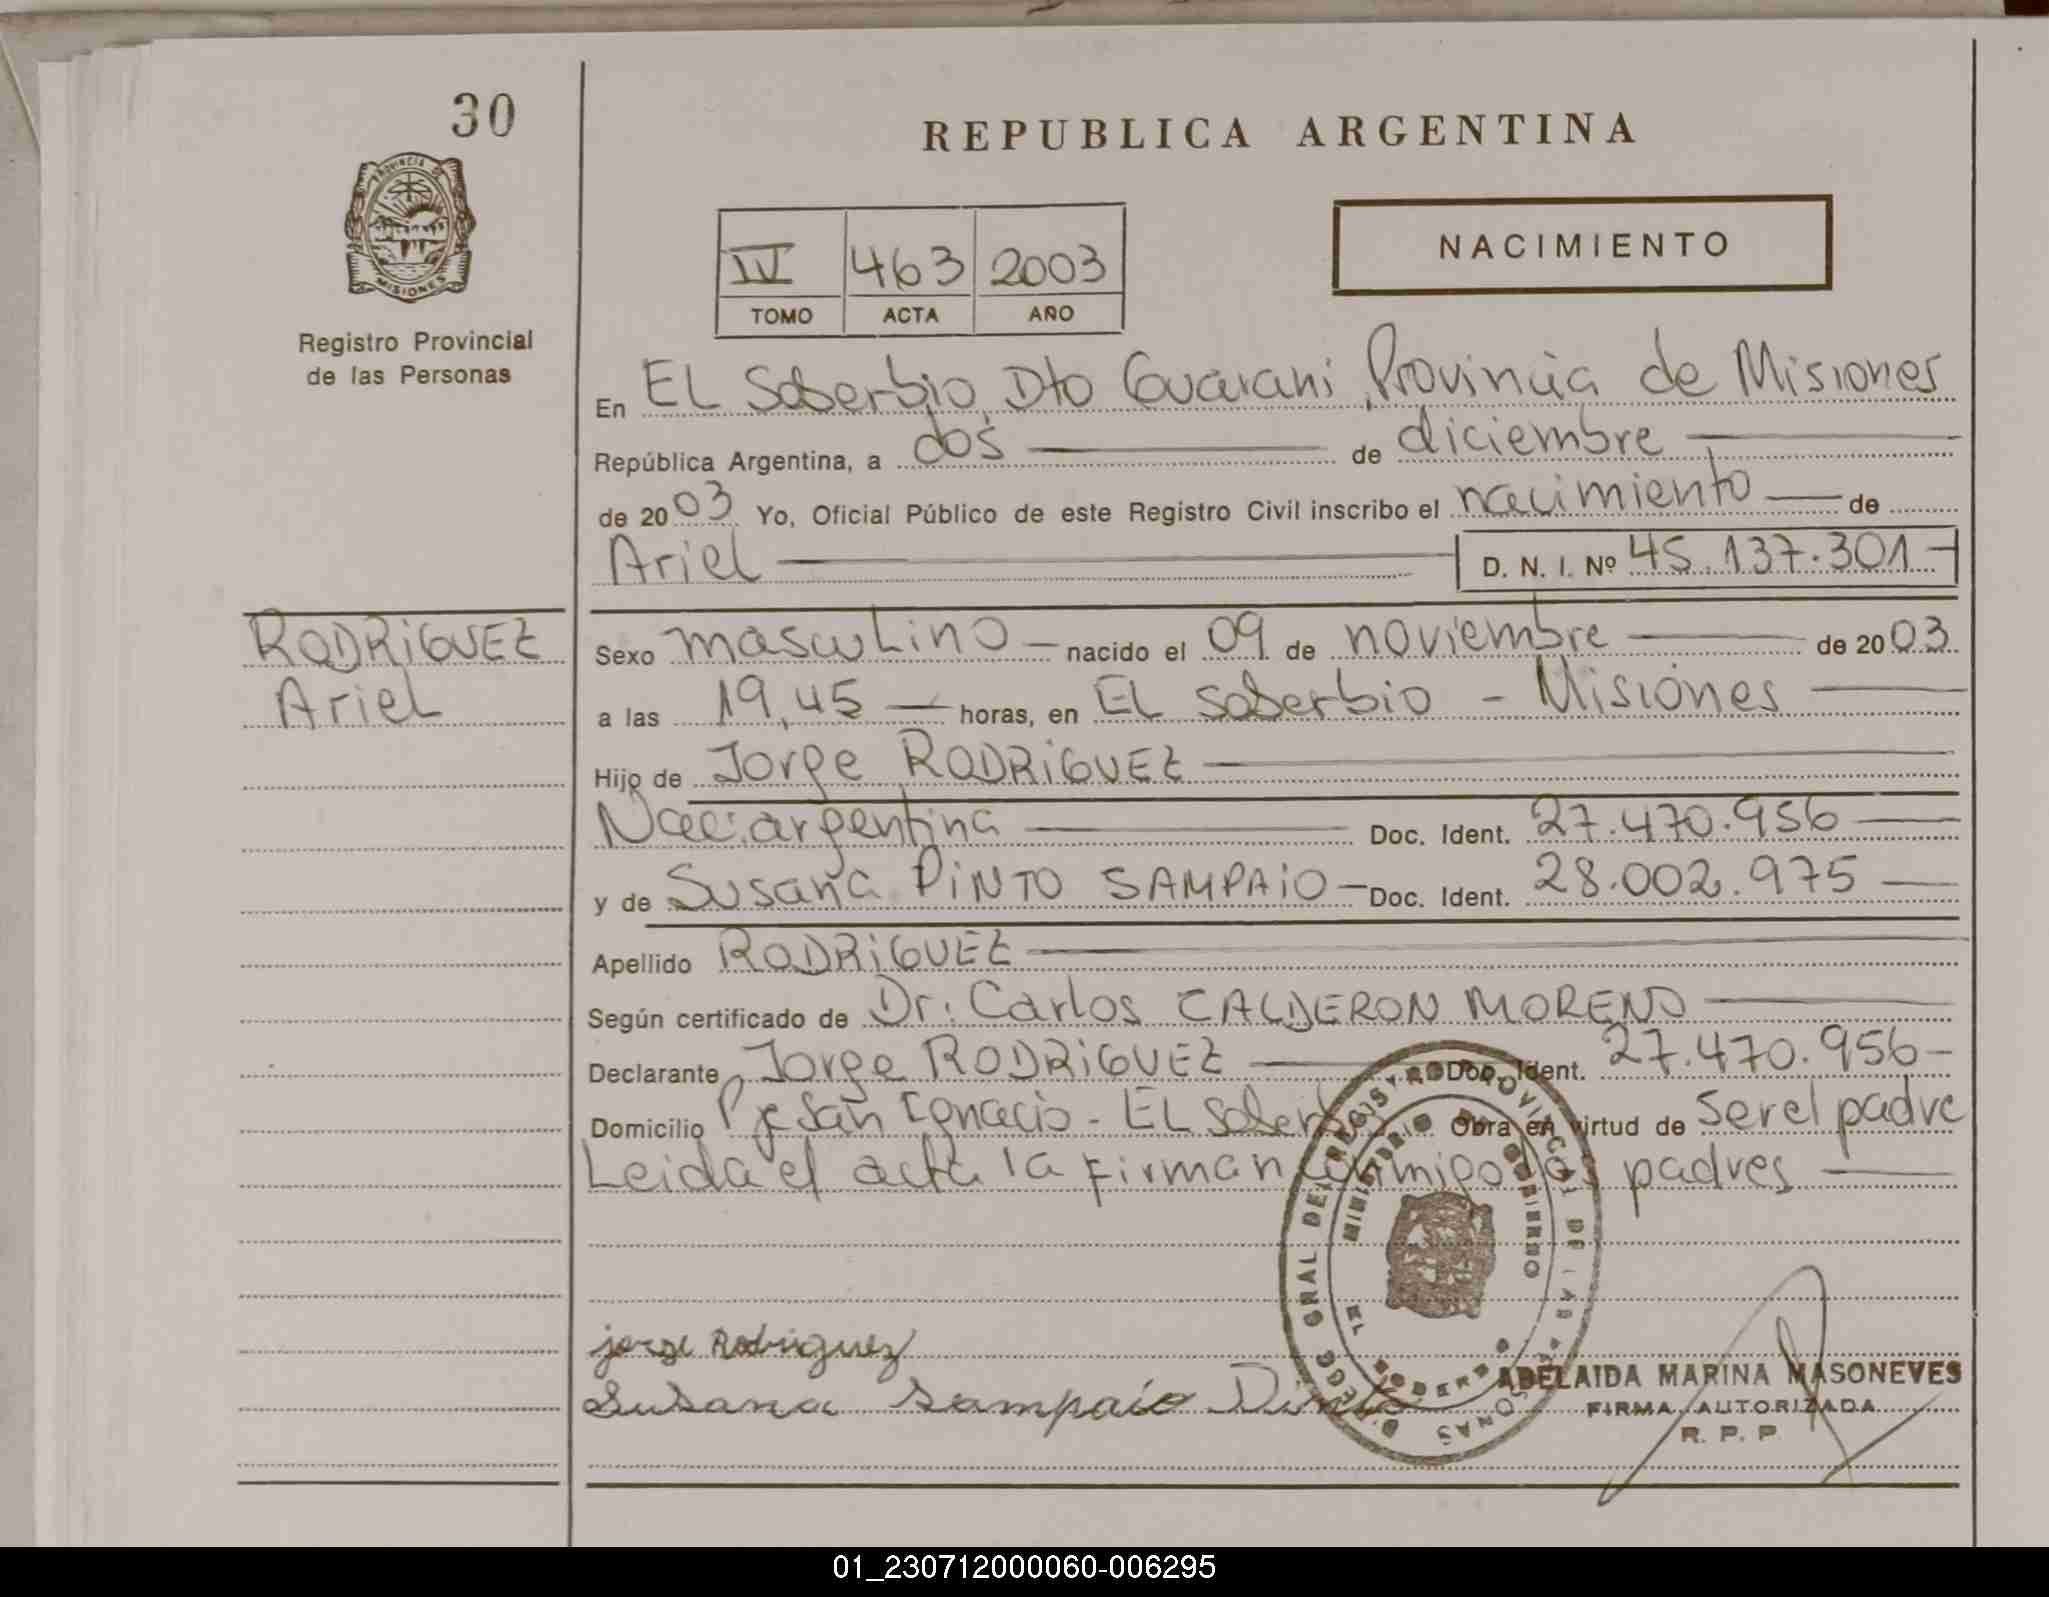 30
REPUBLICA ARGENTINA
PROVINCIA DE
MISIONES
Registro Provincial
de las Personas
NACIMIENTO
IV 463 2003
TOMO ACTA AÑO
En EL Soberbio, Dto Guarani, Provincia de Misiones
República Argentina, a dos de diciembre
de 2003 Yo, Oficial Público de este Registro Civil inscribo el nacimiento de
Ariel D. N. I. Nº 45.137.301
RODRiGUEZ
Ariel
Sexo masculino nacido el 09 de noviembre de 2003
a las 19,45 horas, en EL Soberbio - Misiones
Hijo de Jorge RODRiGUEZ
Nac: argentina Doc. Ident. 27.470.956
y de Susana PiNTO SAMPAiO Doc. Ident. 28.002.975
Apellido RODRiGUEZ
Según certificado de Dr: Carlos CALDERON MORENO
Declarante Jorge RODRiGUEZ Doc. Ident. 27.470.956
Domicilio Pje San Ignacio - EL Soberbio Obra en virtud de ser el padre
Leida el acta la Firman conmigo los padres
DIREGG GRAL DEL REGISTRO PROVINCIAL DE LAS PERSONAS
MINISTERIO DE GOBIERNO
EL SOBERBIO
jorge Rodriguez
Susana Sampaio Pinto
ADELAIDA MARINA MASONEVES
FIRMA AUTORIZADA
R. P. P.
01_230712000060-006295